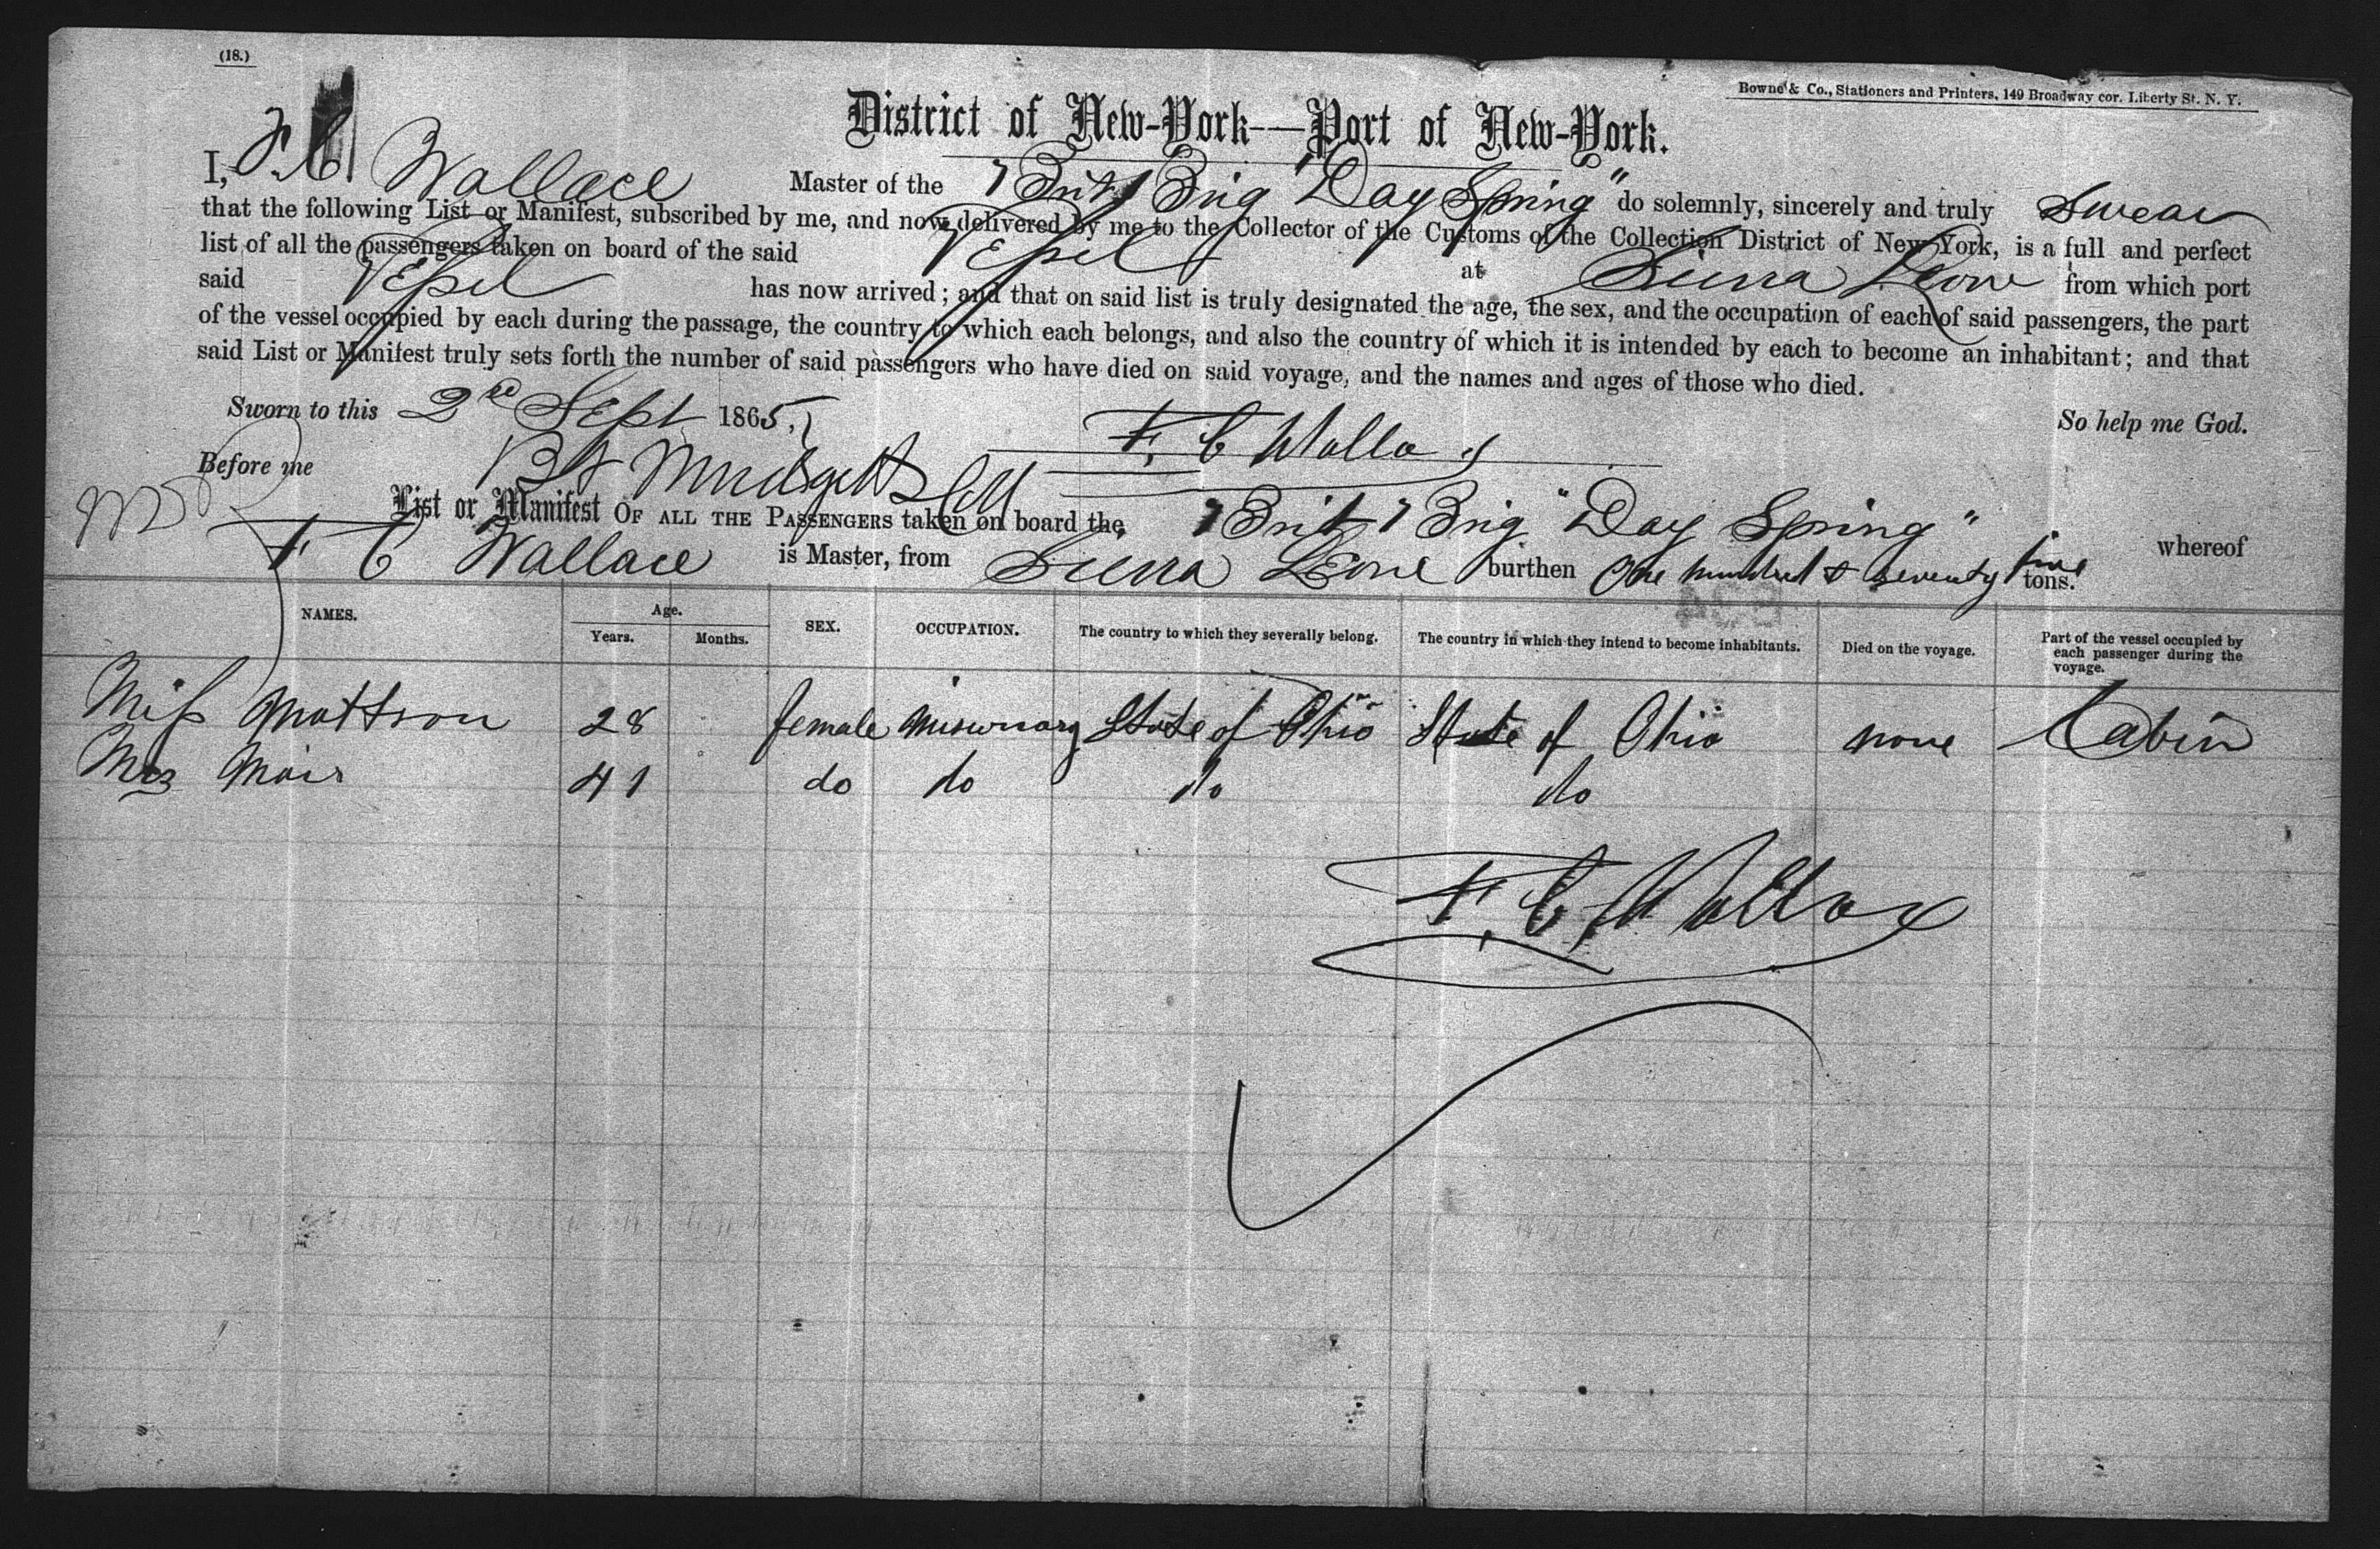 (18.)
Bowne & Co., Stationers and Printers, 149 Broadway cor. Liberty St. N. Y.
District of New-York—Port of New-York.
I, F. C Wallace Master of the Brit Brig "Day Spring" do solemnly, sincerely and truly Swear
that the following List or Manifest, subscribed by me, and now delivered by me to the Collector of the Customs of the Collection District of New York, is a full and perfect
list of all the passengers taken on board of the said Vessel at Sierra Leone from which port
said Vessel has now arrived; and that on said list is truly designated the age, the sex, and the occupation of each of said passengers, the part
of the vessel occupied by each during the passage, the country to which each belongs, and also the country of which it is intended by each to become an inhabitant; and that
said List or Manifest truly sets forth the number of said passengers who have died on said voyage, and the names and ages of those who died.
Sworn to this 2nd Sept 1865, So help me God.
F. C Wallace
Before me
List or Manifest OF ALL THE PASSENGERS taken on board the Brit Brig "Day Spring" whereof
F C Wallace is Master, from Sierra Leone burthen One hundred & seventy five tons.
NAMES. Age. Years. Months. SEX. OCCUPATION. The country to which they severally belong. The country in which they intend to become inhabitants. Died on the voyage. Part of the vessel occupied by each passenger during the voyage.
Miss Mattson 28 female Missionary State of Ohio State of Ohio none Cabin
Mrs Mair 41 do do do do
F. C. Wallace